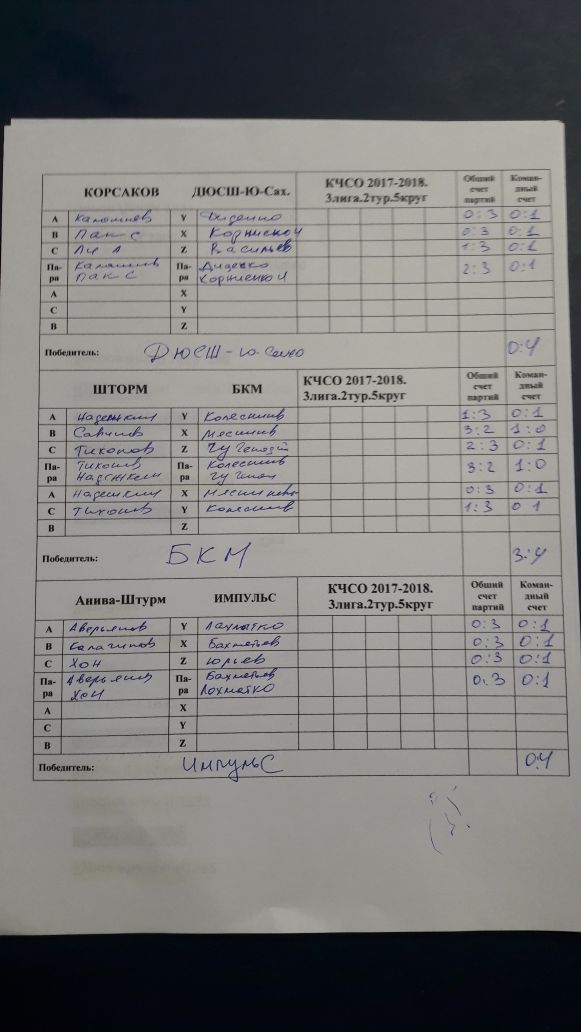 КОРСАКОВ ДЮСШ-Ю-Сах. КЧСО 2017-2018. Общий Коман-
3лига.2тур.5круг счет дный
партий счет
А Y Диденко 0:3 0:1
В Пак С X Корниенко И 0:3 0:1
С Ли Л Z Васильев 1:3 0:1
Па- Па- Диденко 2:3 0:1
ра Пак С ра Корниенко И
А X
С Y
В Z
Победитель: ДЮСШ-Ю-Сах 0:4
ШТОРМ БКМ КЧСО 2017-2018. Общий Коман-
3лига.2тур.5круг счет дный
партий счет
А Надежкин Y Колесник 1:3 0:1
В X 3:2 1:0
С Тихонов Z Чу 2:3 0:1
Па- Па- Колесник 3:2 1:0
ра Надежкин ра Чу
А Надежкин X 0:3 0:1
С Y Колесник 1:3 0 1
В Z
Победитель: БКМ 3:4
Анива-Штурм ИМПУЛЬС КЧСО 2017-2018. Общий Коман-
3лига.2тур.5круг счет дный
партий счет
А Аверьянов Y Лохматко 0:3 0:1
В X Бахметьев 0:3 0:1
С Хон Z Юрьев 0:3 0:1
Па- Аверьянов Па- Бахметьев 0:3 0:1
ра Хон ра Лохматко
А X
С Y
В Z
Победитель: Импульс 0:4